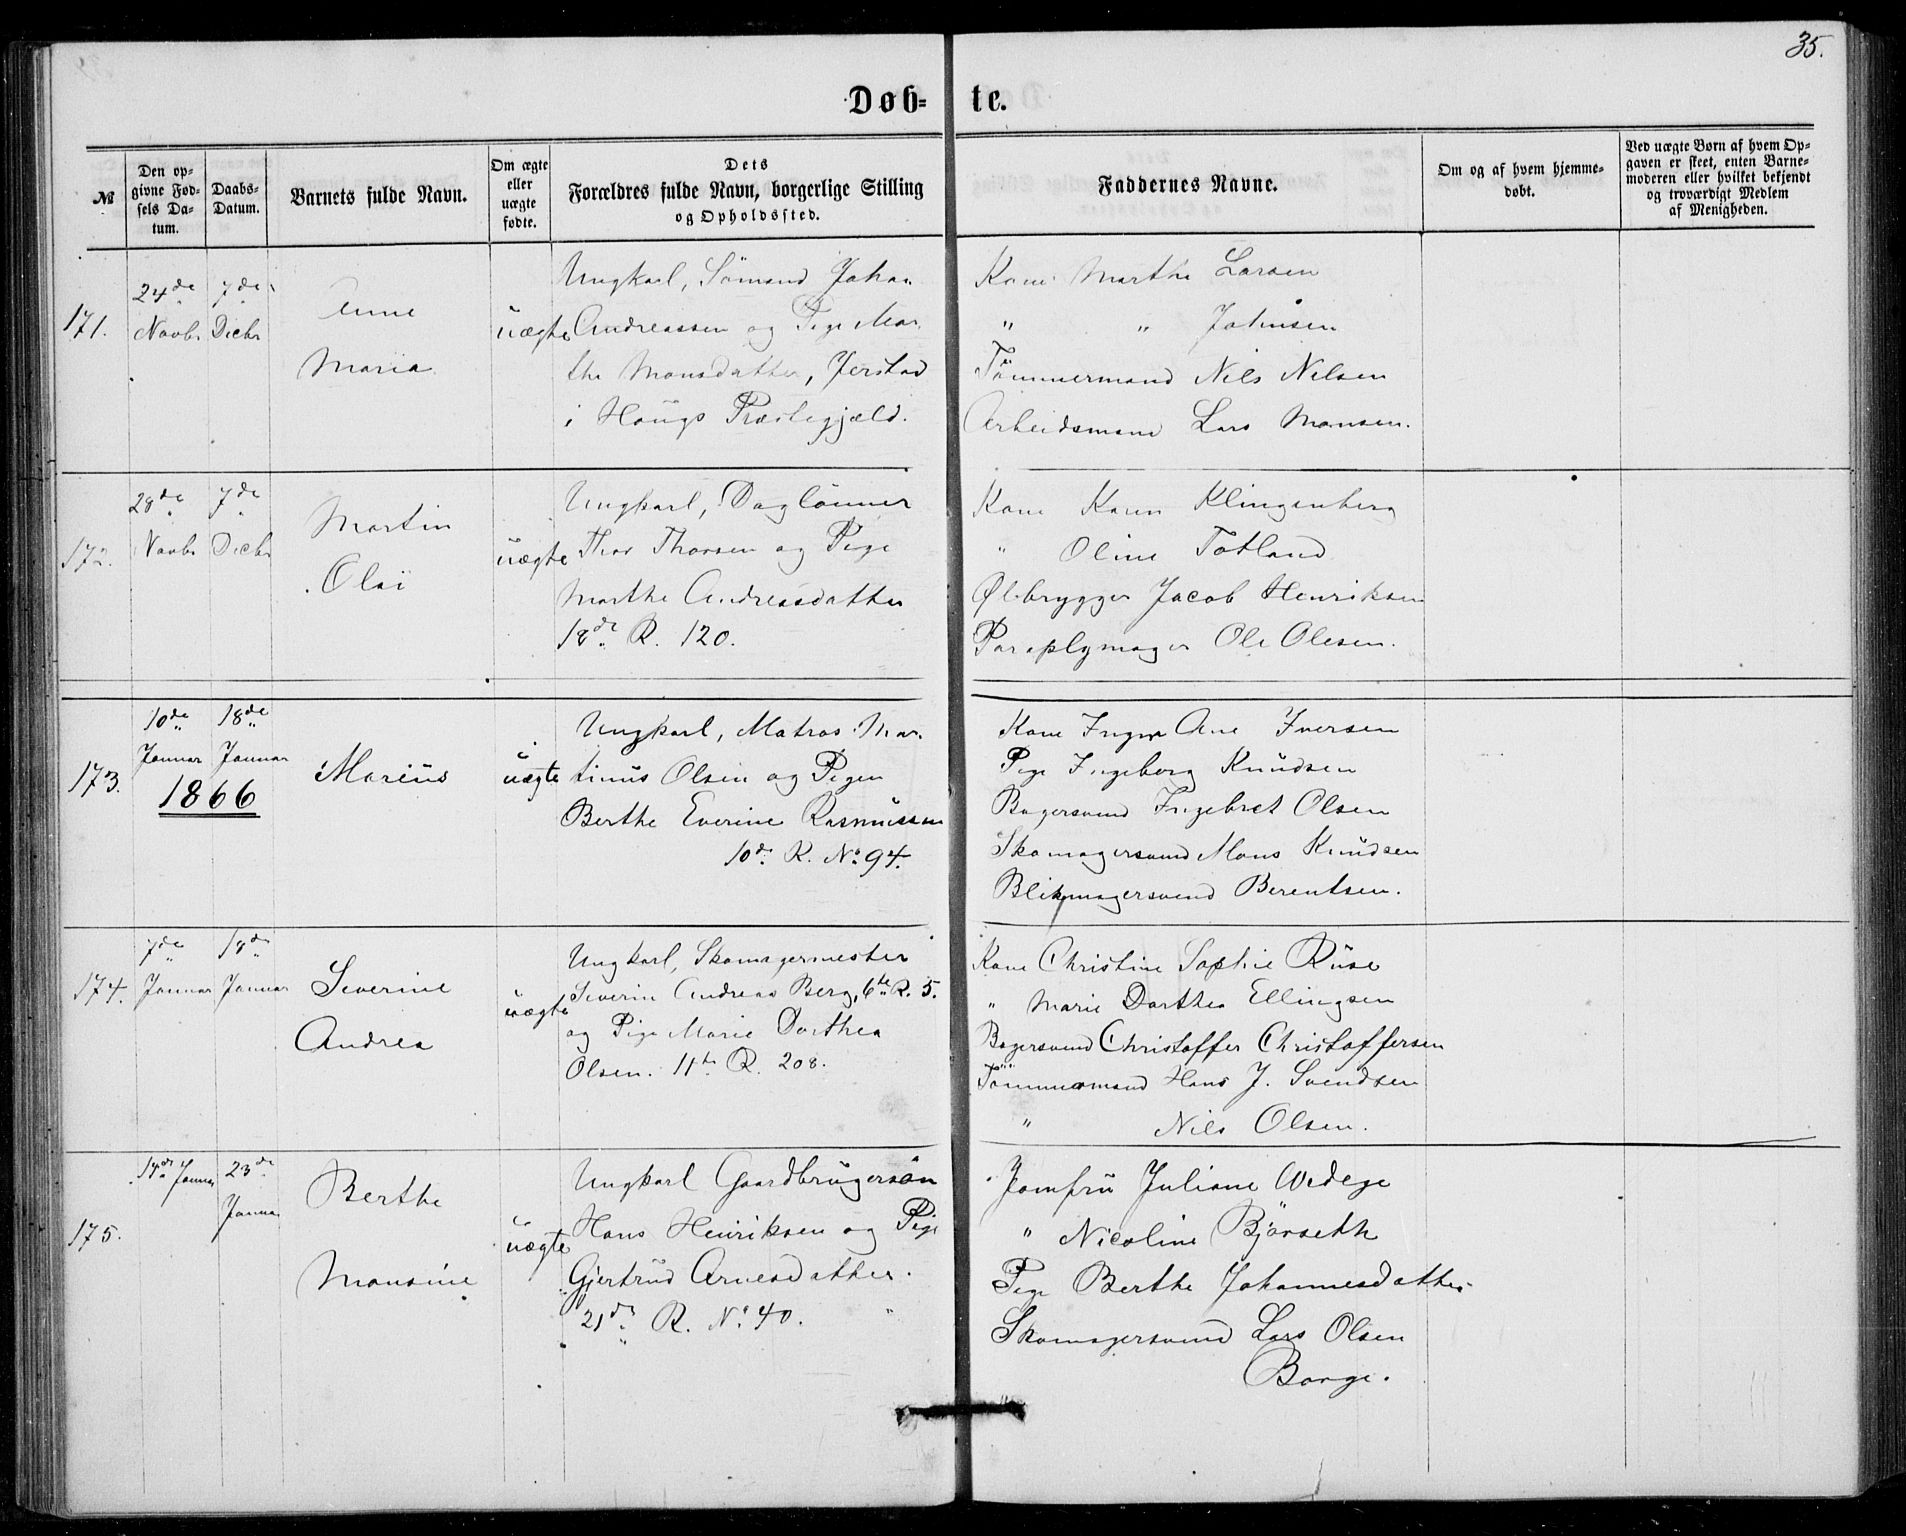 35.
Døb- te.
№
Den op-
givne Fød-
sels Da-
tum.
Daabs-
Datum.
Barnets fulde Navn.
Om ægte
eller
uægte
fødte.
Dets
Forældres fulde Navn, borgerlige Stilling
og Opholdssted.
Faddernes Navne.
Om og af hvem hjemme-
døbt.
Ved uægte Børn af hvem Op-
gaven er skeet, enten Barne-
moderen eller hvilket bekjendt
og troværdigt Medlem
af Menigheden.
171.
24de
Novbr
7de
Decbr
Anne
Maria
uægte
Ungkarl, Sömand Johan
Andreassen og Pige Mar
the Monsdatter, Jerstad
i Hougs Præstegjæld.
Kone Marthe Larsen
" " Johnsen
Tömmermand Nils Nilsen
Arbeidsmand Lars Monsen.
172.
28de
Novbr
7de
Decbr
Martin
Olai
uægte
Ungkarl, Daglönner
Thor Thorsen og Pige
Marthe Andreasdatter
18de R. 120.
Kone Karen Klingenberg
" Oline Totland
Ølbrygger Jacob Henriksen
Paraplymager Ole Olesen.
173.
10de
Januar
18de
Januar
1866
Marius
uægte
Ungkarl, Matros Mar
tinus Olsen og Pigen
Berthe Everine Rasmussen
10de R. No. 94.
Kone Inger Ane Iversen
Pige Ingeborg Knudsen
Bagersvend Ingebret Olsen
Skomagersvend Mons Knudsen
Blikmagersvend Berentsen.
174.
7de
Januar
18de
Januar
Severine
Andrea
uægte
Ungkarl, Skomagermester
Severin Andreas Berg, 6te R. 5.
og Pige Marie Dorthea
Olsen. 11te R. 208.
Kone Christine Sophie Ruse
" Marie Dorthea Ellingsen
Bagersvend Christoffer Christoffersen
Tömmermand Hans J. Svendsen
" Nils Olsen.
175.
14de Januar
23de
Januar
Berthe
Monsine
uægte
Ungkarl Gaardbrugersön
Hans Henriksen og Pige
Gjertrud Arnesdatter.
21de R. No. 40.
Jomfru Juliane Wedege
" Nicoline Björseth
Pige Berthe Johannesdatter
Skomagersvend Lars Olsen
Borge.